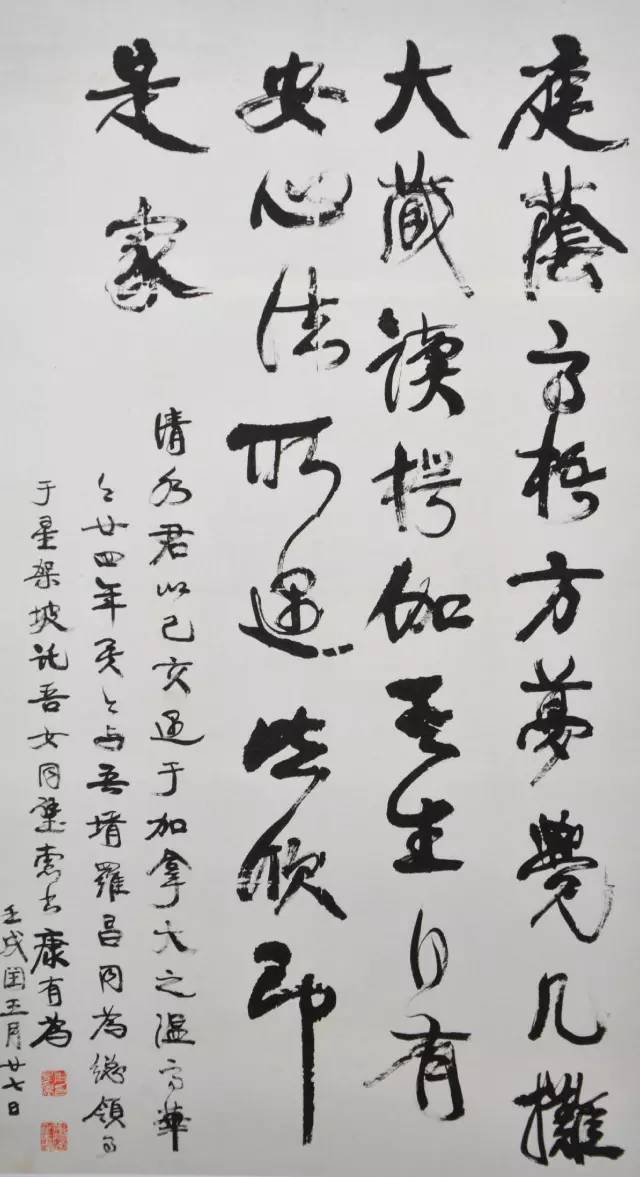 庭蔭高梧方夢覺几攤
大藏讀楞伽吾生自有
安心法所遇皆欣即
是家
清水君以己亥遇于加拿大之温高華
今廿四年矣今与吾壻羅昌同為總領事
于星架坡託吾女同璧索書康有為
壬戌閏五月廿七日